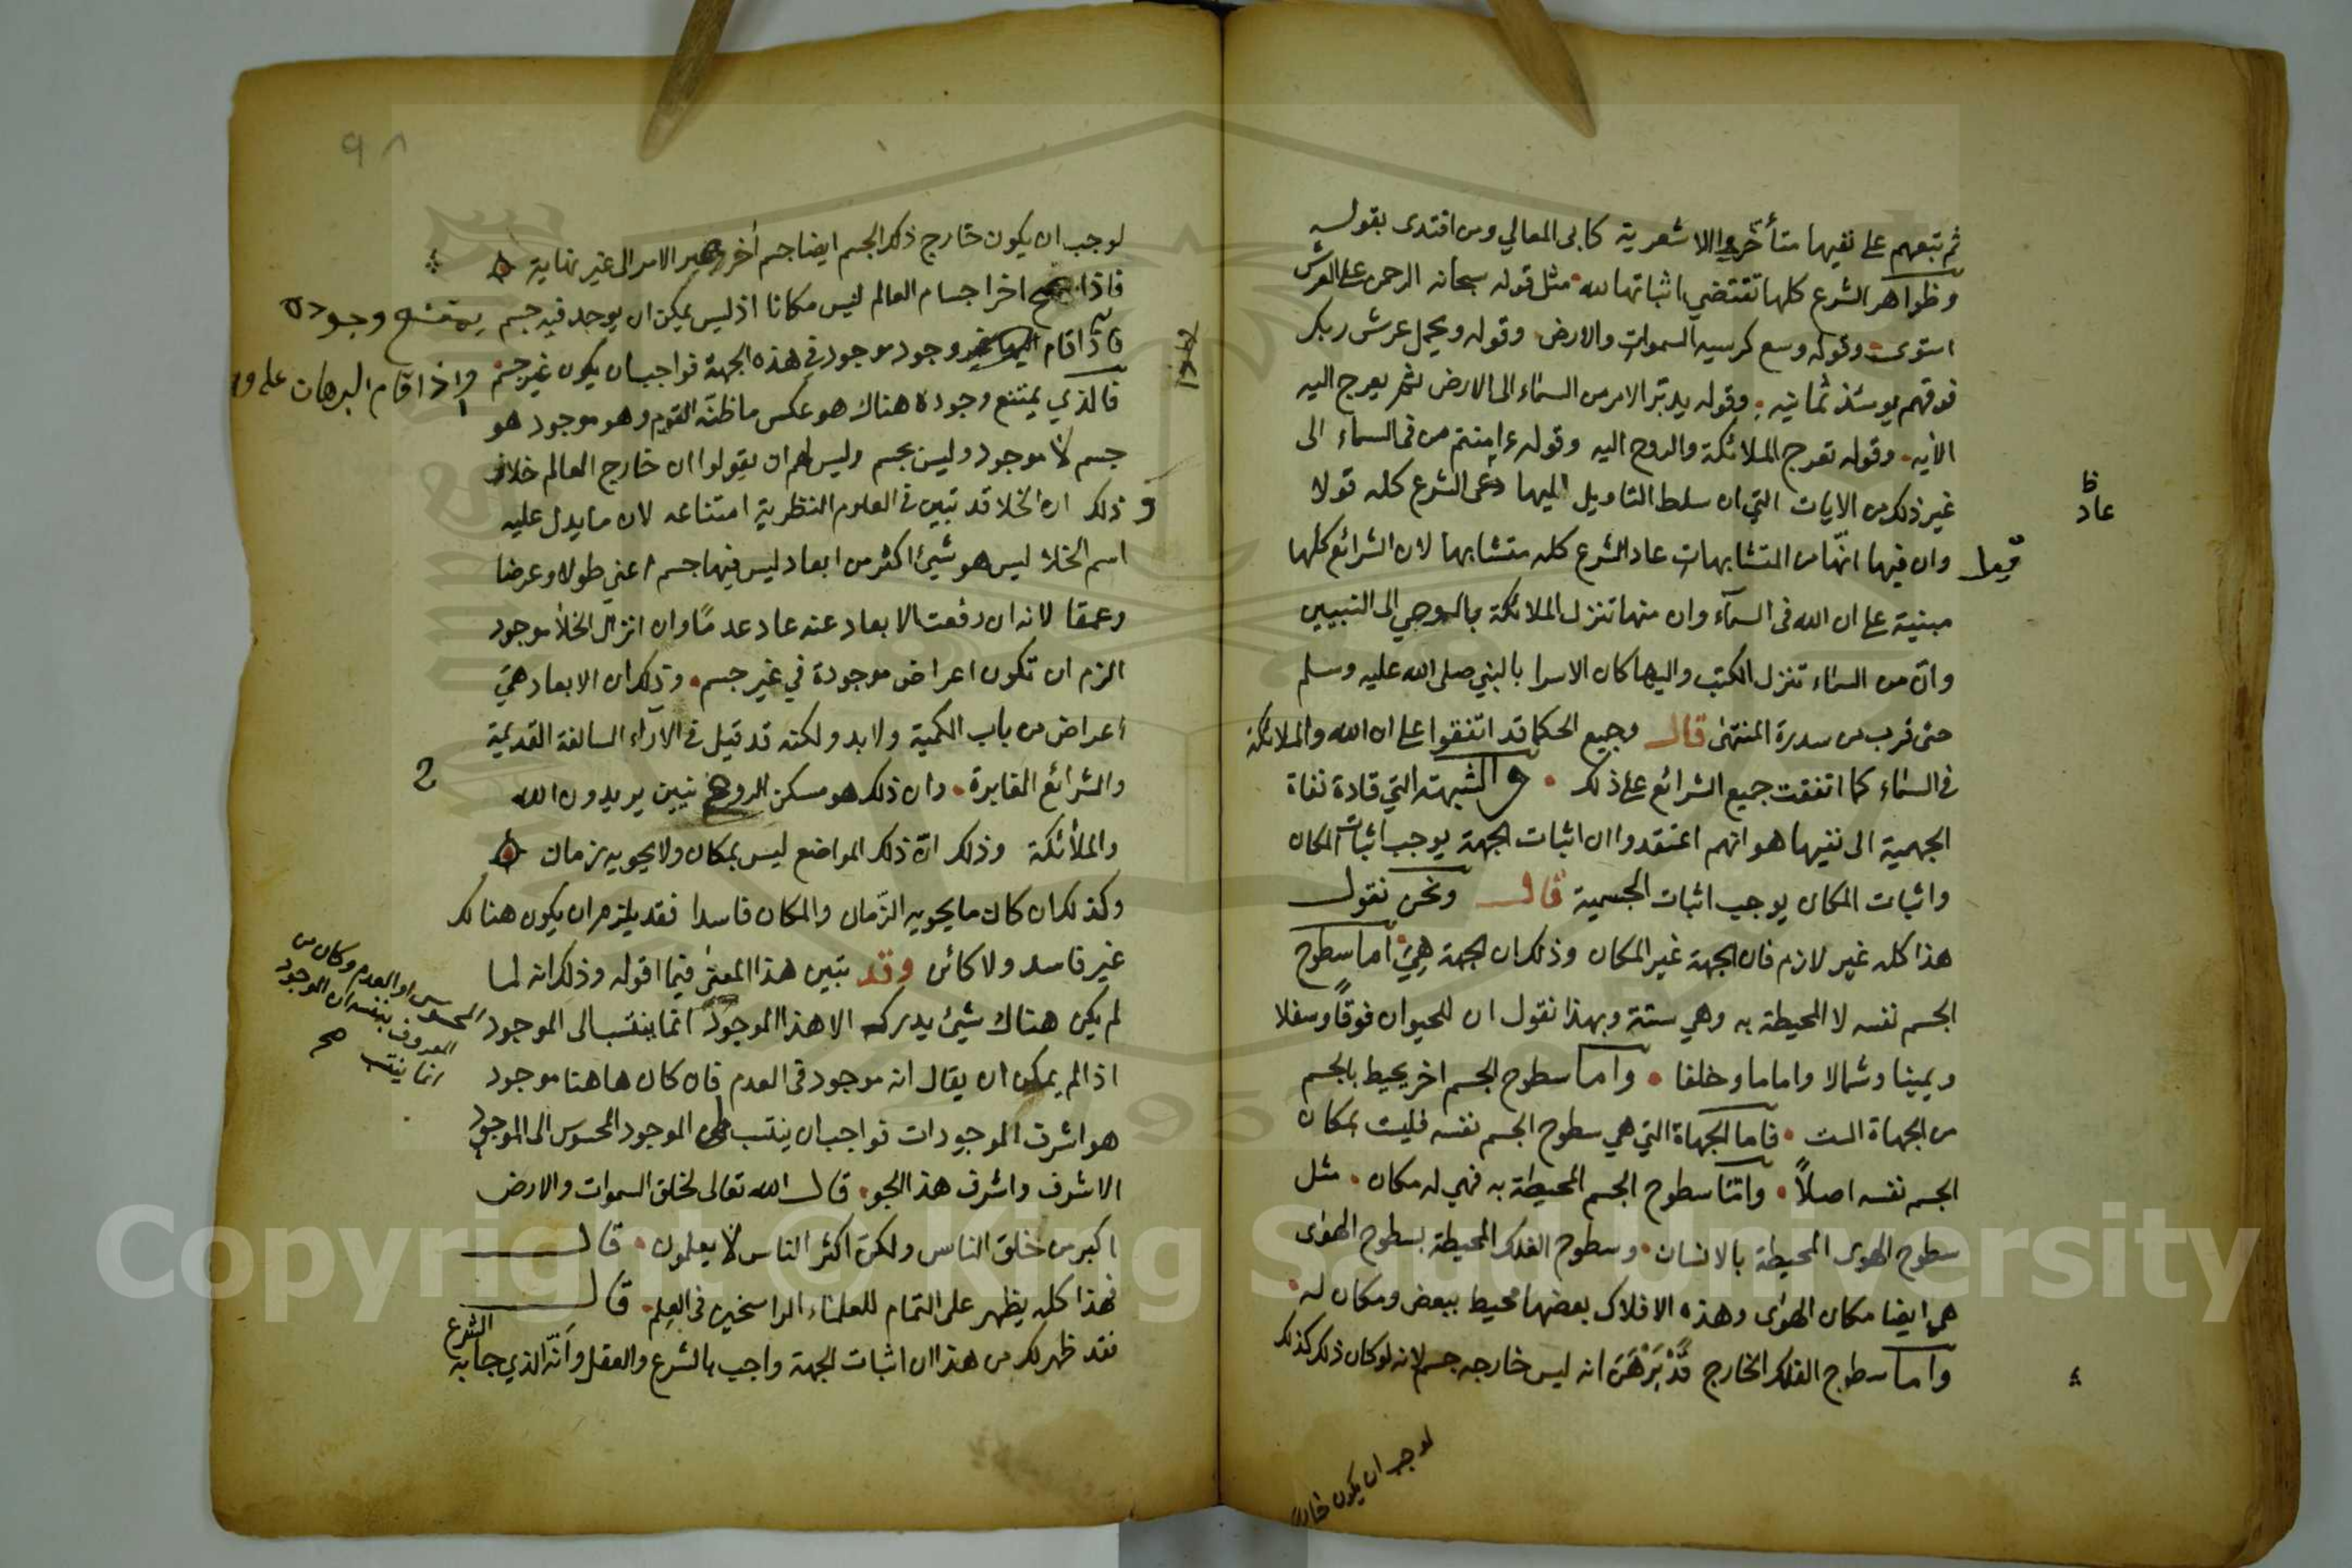 ثم تبعهم على نفيها متأخروا الاشعرية كابى المعالي ومن اقتدى بقوله
وظواهر الشرع كلها تقتضي اثباتها لله مثل قوله سبحانه الرحمن على العرش
استوى وقوله وسع كرسيه السموات والارض وقوله ويحمل عرش ربك
فوقهم يومئذ ثمانيه وقوله يدبر الامر من السماء الى الارض ثم يعرج اليه
الآيه وقوله تعرج الملائكة والروح اليه وقوله ءامنتم من في السماء الى
غير ذلك من الايات التي ان سلط التاويل اليها دعى الشرع كله قولا
ظ
عاد
وان فيها انها من المتشابهات عاد الشرع كله متشابها لان الشرائع كلها
قيل
مبنية على ان الله فى السمآء وان منها تنزل الملائكة بالوحي الى النبيين
وان من السماء تنزل الكتب واليها كان الاسرا بالنبي صلى الله عليه وسلم
حتى قرب من سدرة المنتهى قال وجميع الحكما قد اتفقوا على ان الله والملائكة
في السماء كما اتفقت جميع الشرائع على ذلك والشبهة التي قادة نفاة
الجهمية الى نفيها هو انهم اعتقدوا ان اثبات الجهة يوجب اثبات المكان
واثبات المكان يوجب اثبات الجسمية قال ونحن نقول
هذا كله غير لازم فان الجهة غير المكان وذلك ان الجهة هي اما سطوح
الجسم نفسه لا المحيطة به وهي ستة وبهذا نقول ان للحيوان فوقاً وسفلا
ويمينا وشمالا واماما وخلفا واما سطوح الجسم اخر يحيط بالجسم
من الجهاة الست فاما الجهاة التي هي سطوح الجسم نفسه فليست بمكان
الجسم نفسه اصلاً وامّا سطوح الجسم المحيطة به فهي له مكان مثل
سطوح الهوى المحيطة بالانسان وسطوح الفلك المحيطة بسطوح الهوى
هي ايضا مكان الهوى وهذه الافلاك بعضها محيط ببعض ومكان له
واما سطوح الفلك الخارج قد برهن انه ليس خارجه جسم لانه لو كان ذلك كذلك
لوجب ان يكون خارج
٩٨
لوجب ان يكون خارج ذلك الجسم ايضا جسم أخر ويمر الامر الى غير نهاية
فاذا سطح اخر اجسام العالم ليس مكانا اذ ليس يمكن ان يوجد فيه جسم يمتنع وجوده
فاذا قام وجود موجود في هذه الجهة فواجب ان يكون غير جسم واذا قام البرهان على و
فالذي يمتنع وجوده هناك هو عكس ما ظنه القوم وهو موجود هو
جسم لا موجود وليس بجسم وليس لهم ان يقولوا ان خارج العالم خلاء
وذلك ان الخلا قد تبين في العلوم النظرية امتناعه لان ما يدل عليه
اسم الخلا ليس هو شيئ اكثر من ابعاد ليس فيها جسم اعني طولا وعرضا
وعمقا لانه ان رفعت الابعاد عنه عاد عدمًا وان انزل الخلا موجود
الزم ان تكون اعراض موجودة في غير جسم وذلك ان الابعاد هي
اعراض من باب الكمية ولابد ولكنه قد قيل في الآراء السالفة القديمة
والشرائع الغابرة وان ذلك هو مسكن الروحانيين يريدون الله
والملأئكة وذلك ان ذلك المواضع ليس بمكان ولا يحويه زمان
وكذلك ان كان ما يحويه الزمان والمكان فاسدا فقد يلزم ان يكون هنالك
غير فاسد ولا كائن وقد تبين هذا المعنى فيما اقوله وذلك انه لما
لم يكن هناك شيئ يدرك الا هذا الموجود انما ينتسب الى الموجود
المحسوس او العدم وكان من
المعروف بنفسه ان الموجود
انما ينتسب صح
اذ لم يمكن ان يقال انه موجود فى العدم فان كان هاهنا موجود
هو اشرف الموجودات فواجب ان ينتسب من الموجود المحسوس الى الموجود
الاشرف واشرف هذا الجو قال الله تعالى لخلق السموات والارض
اكبر من خلق الناس ولكن اكثر الناس لا يعلمون قال
فهذا كله يظهر على التمام للعلماء الراسخين في العلم قال
فقد ظهر لك من هذا ان اثبات الجهة واجب بالشرع والعقل وأنه الذي جا به الشرع
Copyright © King Saud University
1957